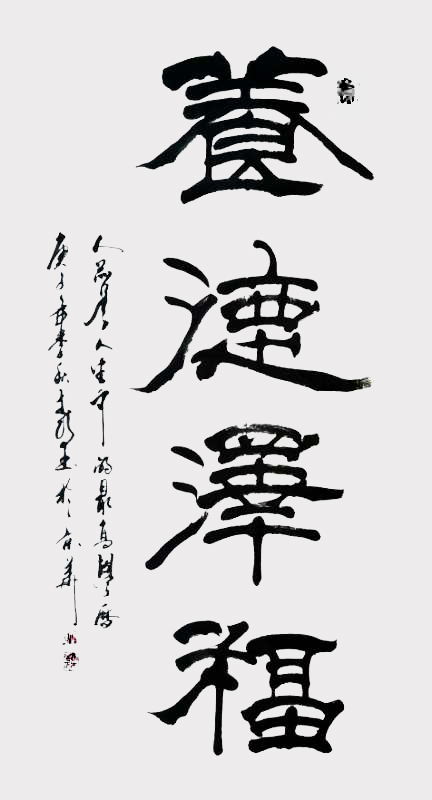 養德澤福
人品是人生中的最高學歷
庚子年季秋書於京華